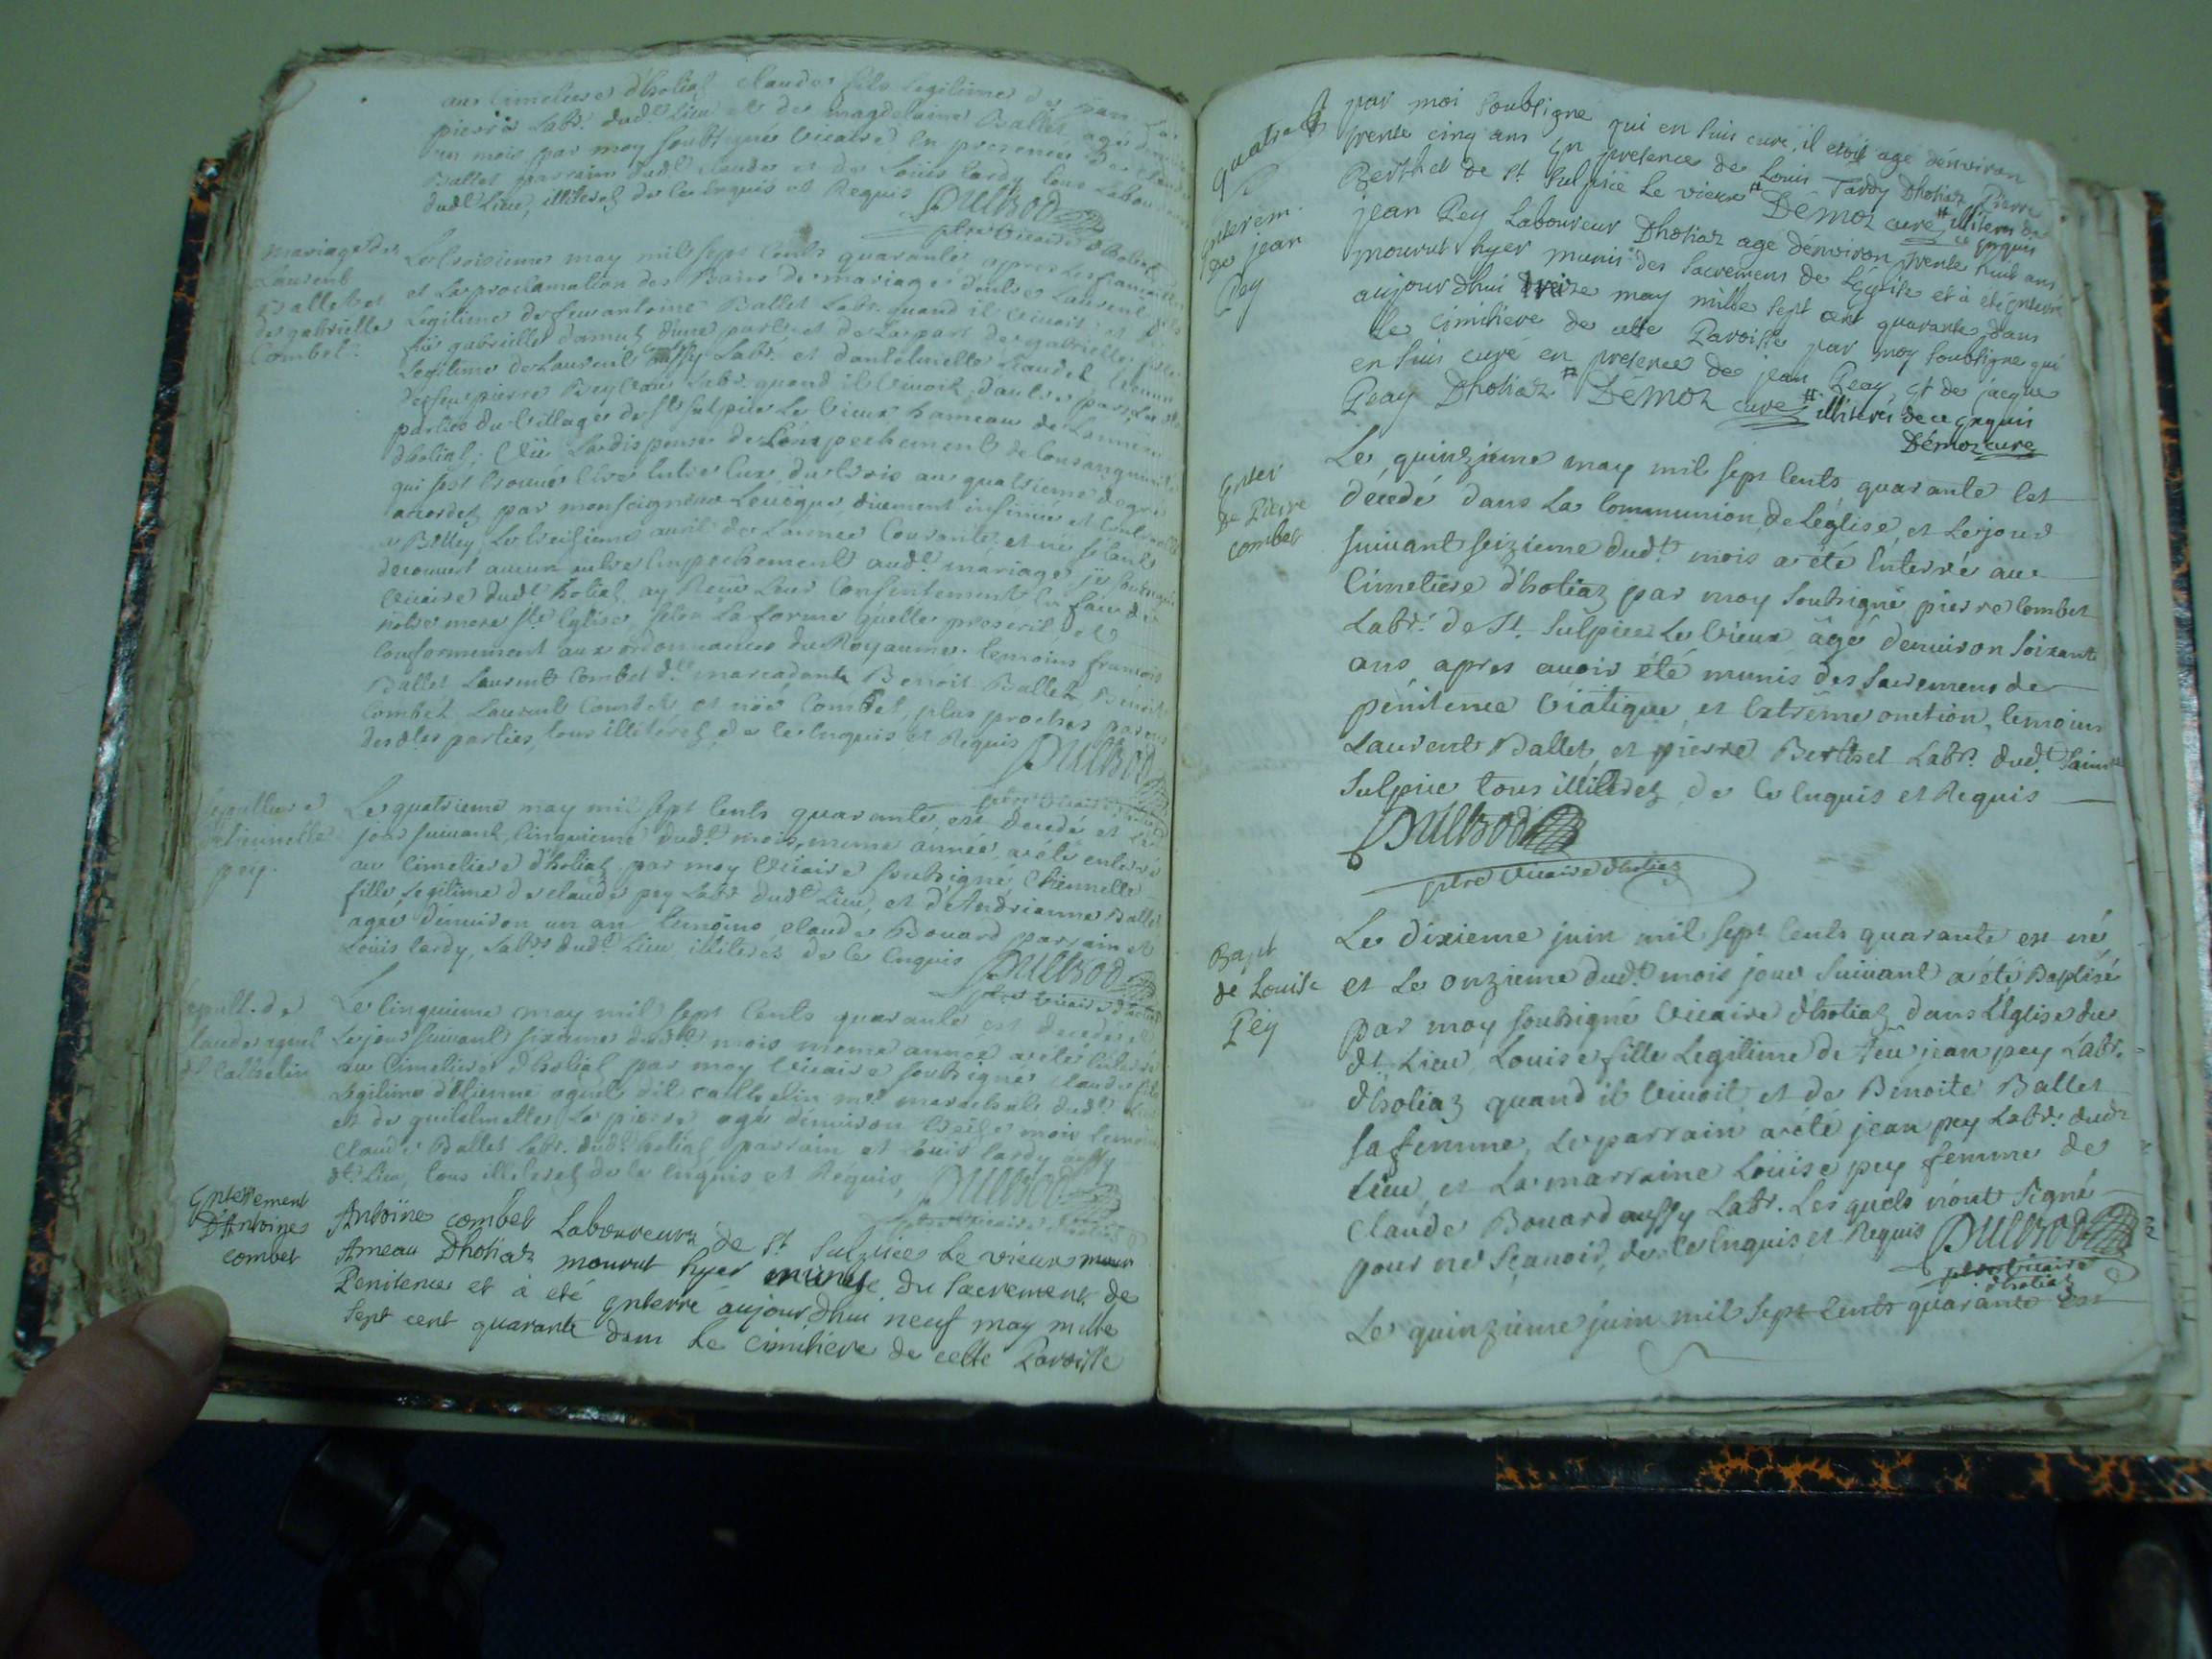 au Cimetiere d'hotiaz Claude fils legitime de jean La
pierre Labr. dudt. Lieu et de magdelaine Ballet agé denviron
un mois par moy soubsigné Vicaire en presence de Claude
Ballet parrain dudt Claude et de Loüis tardy tous Laboureurs
dudt Lieu, illiterez de ce Enquis et Requis
ptre Vicaire d'hotiaz
mariage de
Laurent
Ballet et
de gabrielle
Combet.
Le troisieme may mil sept Cents quarante apres les fiançailles
et La proclamation des Bans de mariage d'entre Laurent fils
Legitime de feu antoine Ballet Labr. quand il Vivoit et de
gabrielle d'une part, et de La part de gabrielle fille
Legitime de Laurent Combet Labr. et d'antoinette
de feu pierre Labr. quand il Vivoit, d'autre part, Les dtes
parties du Village de St Sulpice Le Vieux hameau de
d'hotiaz; Vü La dispense de L'empechement de Consanguinité
qui s'est trouvé Entre Eux du trois au quatrieme degré
accordez par monseigneur Leveque düement insinué et Controllé
a Belley Le treisieme avril de L'année Courante, et ne s'etant
decouvert aucun autre Empechement audt mariage je soubsigné
Vicaire dudt hotiaz ay Reçu Leur Consentement En face de
notre mere Ste Eglise, selon La forme qu'elle prescrit et
Conformement aux ordonnances du Royaume. temoins françois
Ballet Laurent Combet Benoit Ballet, Benoit
Combet Laurent Combet et Combet, plus proches parens
des dtes parties, tous illiterez de ce Enquis et Requis
ptre Vicaire
sepulture
detiennette
pey.
Le quatrieme may mil sept Cents quarante, est decedé et Le
jour suivant, Cinquieme dudt. mois, meme année, a été enterré
au Cimetiere d'hotiaz par moy Vicaire soubsigné, Etiennette
fille Legitime de claude pey Labr dudt Lieu, et d'Andrianne Ballet
agée d'environ un an temoins claude Bouard parrain et
Louis tardy, Labrs dudt. Lieu illiterés de ce Enquis
ptre Vicaire d'hotiaz
sepult. de
Claude
dt Cathelin
Le Cinquieme may mil sept Cents quarante est decedé et
Le jour suivant sixieme dudt mois meme année a été Enterré
au Cimetiere d'hotiaz par moy Vicaire soubsigné Claude fils
Legitime d'Etienne dit cathelin me marechal dudt Lieu
et de guilelmette La pierre agé d'environ treize mois temoins
Claude Ballet Labr. dudt hotiaz parrain et Louis tardy aussy
dt Lieu, tous illiterez de ce Enquis et Requis
ptre Vicaire
Enterrement
D'Antoine
combet
Antoine combet Laboureur de St Sulpice Le vieux
Ameau Dhotiaz mourut hyer munis du Sacrement de
Penitence et à eté Enterré aujour dhui neuf may mille
Sept cent quarante dans Le Cimitiere de cette Paroisse
par moi Soubsigné qui en Suis curé, il etoit agé dénviron
trente cinq ans En presence de Louis Tardy Dhotiaz Pierre
Berthet de St Sulpice Le vieux # Démoz curé # illiteres de
ce Enquis
Enterem.
de jean
Pey
jean Pey Laboureur Dhotiaz agé dénviron trente huit ans
mourut hyer munis des Sacremens de L'Eglise et à eté Enterré
aujour dhui treize may mille Sept cent quarante dans
Le cimitiere de cette Paroisse par moy Soubsigné qui
en Suis curé en presence de jean Peay et de jacque
Peay Dhotiaz # Démoz curé # illiteres de ce Enquis
Démoz curé
Enter
de Pierre
combet
Le quinzieme may mil sept Cents quarante Est
décedé dans La Communion de L'église, et Le jour
suivant seizieme dudt mois a été Enterré au
Cimetiere d'hotiaz par moy soubsigné pierre Combet
Labr. de St. Sulpice Le Vieux âgé d'environ soixante
ans apres avoir été munis des sacremens de
pénitence Viatique, et Extrême onction, temoins
Laurent Ballet, et pierre Berthet Labrs. dudt Saint
Sulpice tous illiterez de ce Enquis et Requis
ptre Vicaire d'hotiaz
Bapt
de Louise
Pey
Le dixieme juin mil sept Cents quarante est né
et Le onzieme dudt. mois jour suivant a été Baptisé
par moy soubsigné Vicaire d'hotiaz dans L'Eglise du
dt. Lieu Louise fille Legitime de feu jean pey Labr.
d'hotiaz quand il Vivoit, et de Benoite Ballet
sa femme, Le parrain a été jean pey Labr. dudt
Lieu et La marraine Loüise pey femme de
Claude Bouard aussy Labr. Les quels n'ont signé
pour ne sçavoir, de ce Enquis et Requis
ptre Vicaire
d'hotiaz
Le quinzieme juin mil sept Cents quarante est